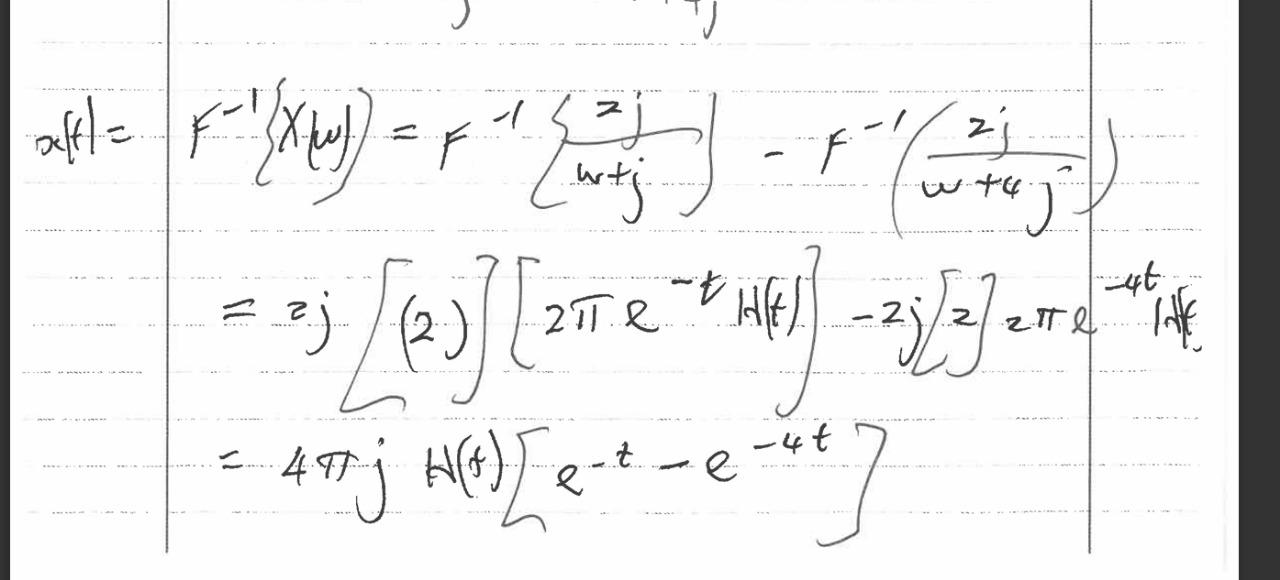 x(t) = F^-1{X(w)} = F^-1{2j/(w+j)} - F^-1(2j/(w+4j))
= 2j[(2)][2π e^-t H(t)] - 2j[2] 2π e^-4t H(t
= 4πj H(t)[e^-t - e^-4t]